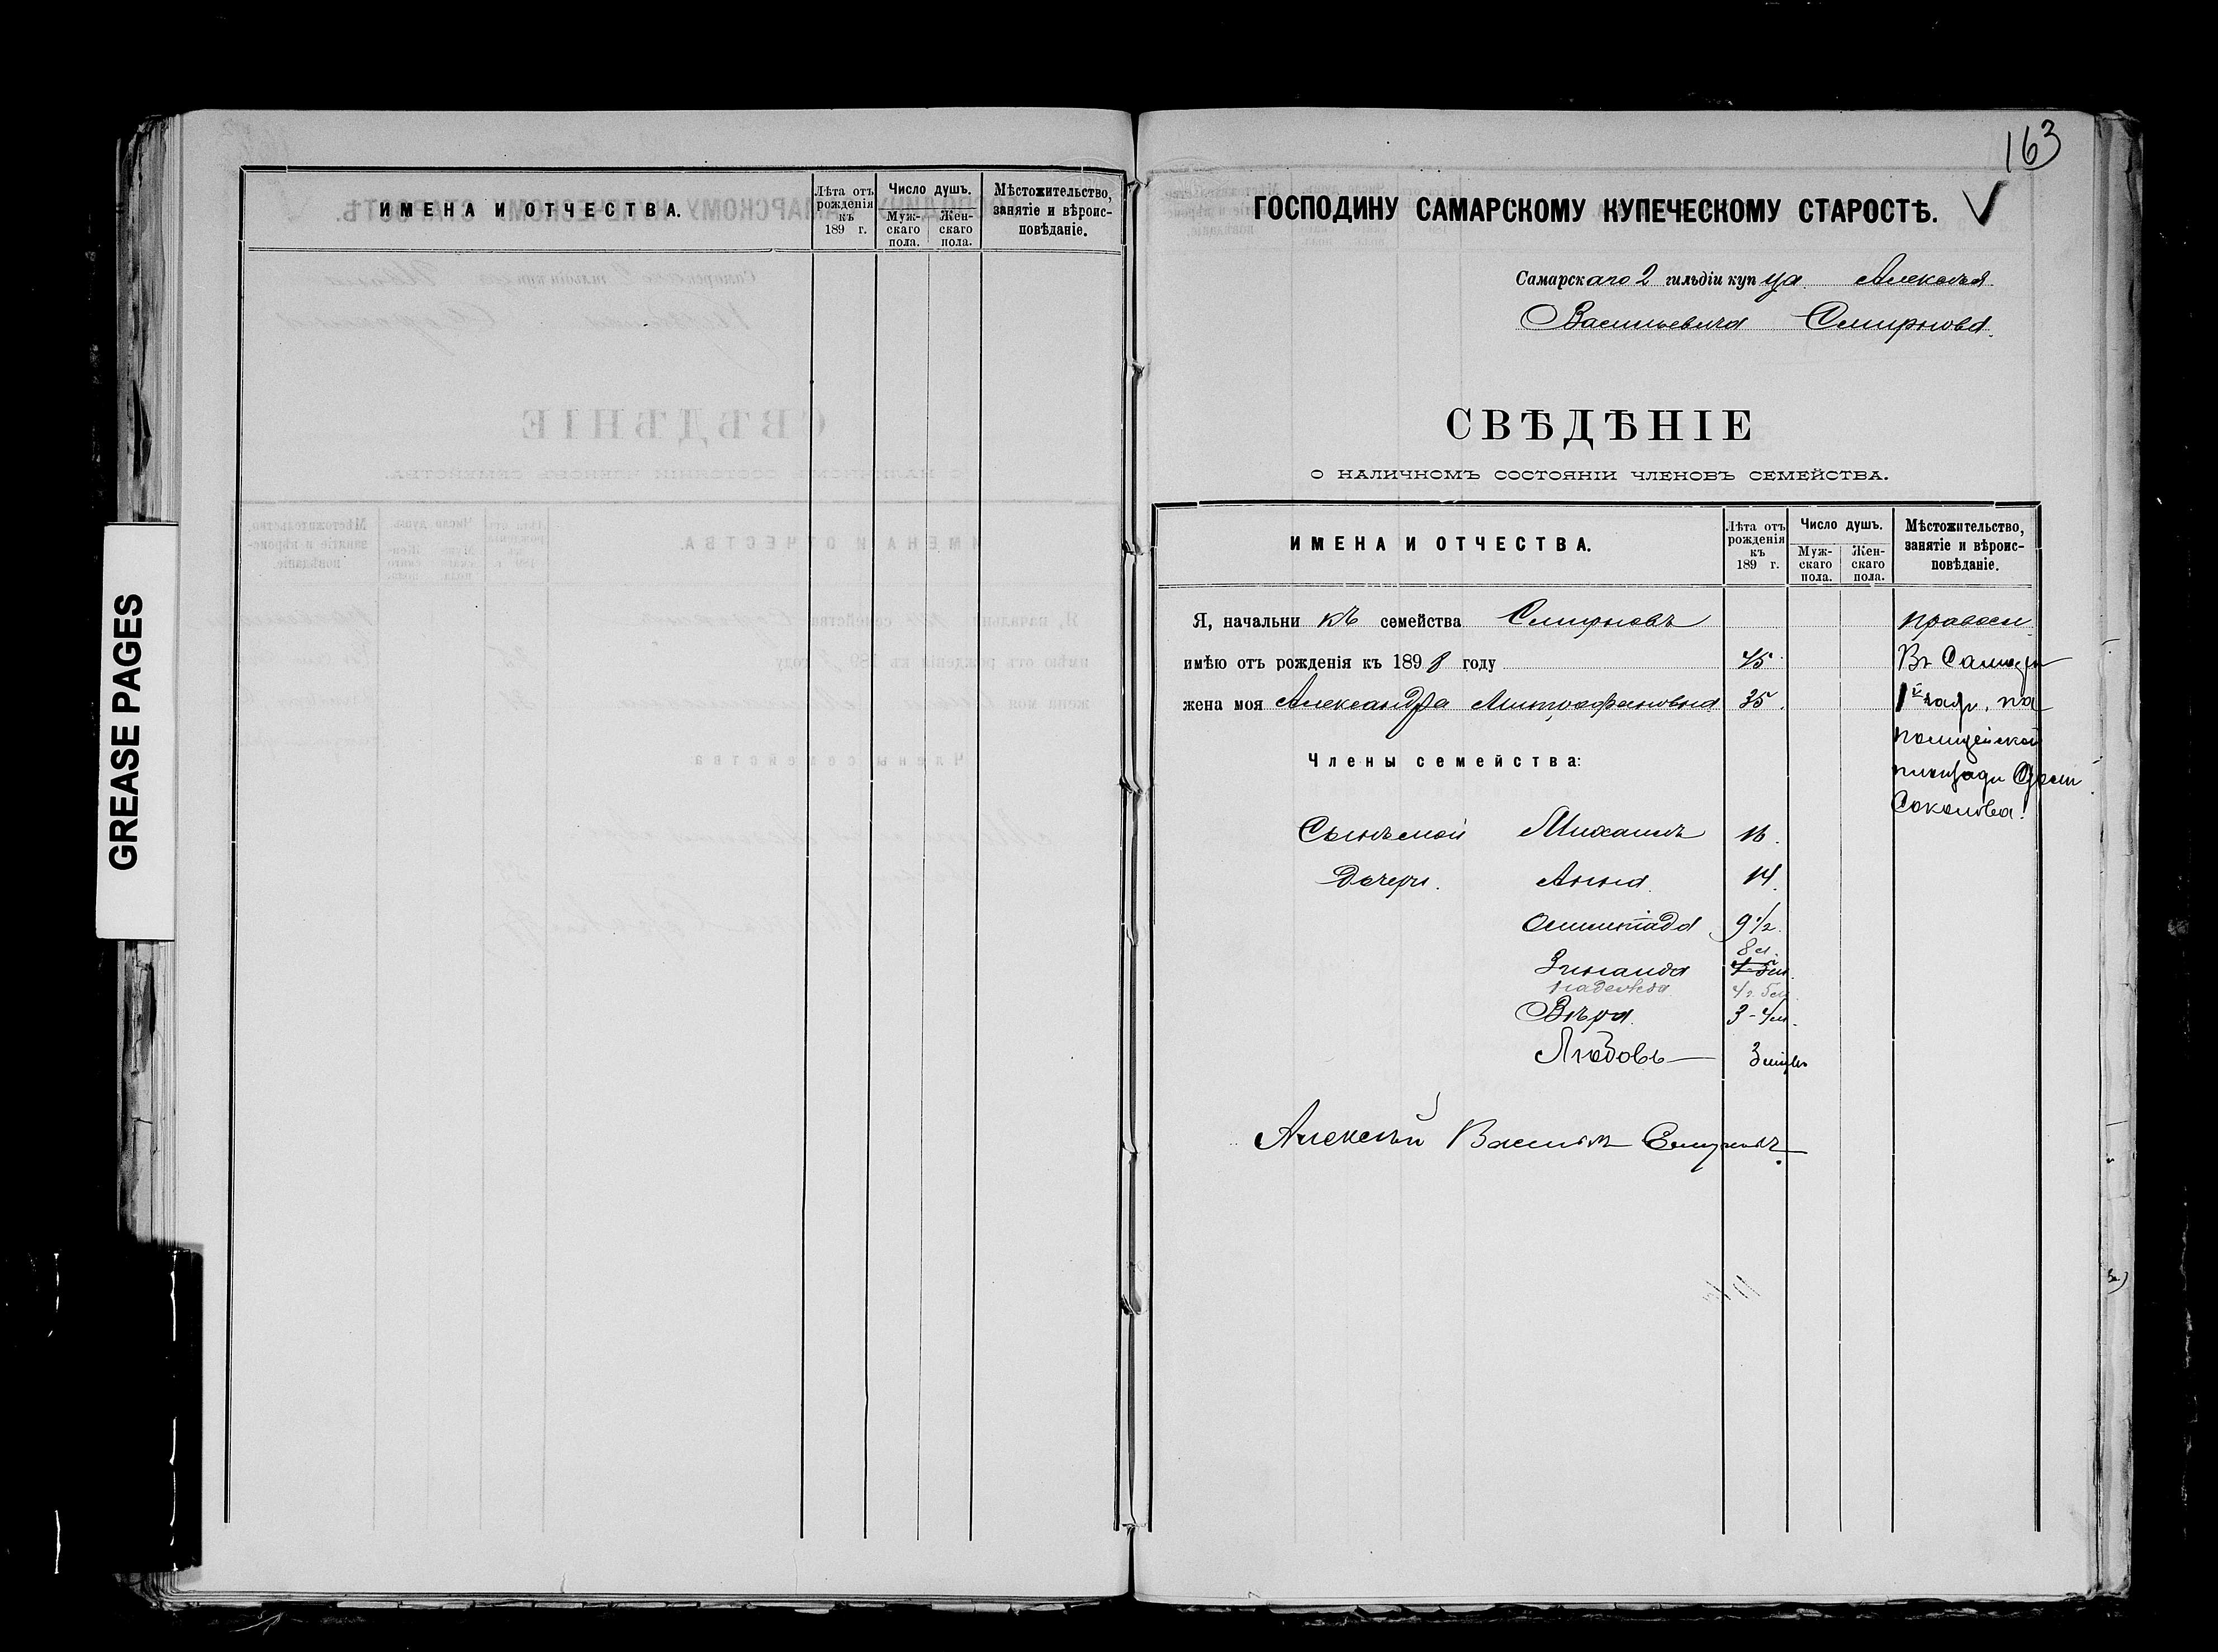 GREASE PAGES
ИМЕНА И ОТЧЕСТВА.
Лѣта отъ рожденія къ 189 г.
Число душъ.
Мужскаго пола.
Женскаго пола.
Мѣстожительство, занятіе и вѣроисповѣданіе.
163
ГОСПОДИНУ САМАРСКОМУ КУПЕЧЕСКОМУ СТАРОСТѢ.
Самарскаго 2 гильдіи купца Алексѣя
Васильевича Смирнова.
СВѢДѢНІЕ
О НАЛИЧНОМЪ СОСТОЯНІИ ЧЛЕНОВЪ СЕМЕЙСТВА.
ИМЕНА И ОТЧЕСТВА.
Лѣта отъ рожденія къ 189 г.
Число душъ.
Мужскаго пола.
Женскаго пола.
Мѣстожительство, занятіе и вѣроисповѣданіе.
Я, начальникъ семейства Смирновъ правосл
имѣю отъ рожденія къ 1898 году 45. Въ Самарѣ
жена моя Александра Митрофановна 35. 1й на
полицейской
Члены семейства:
площади
Соколова.
Сынъ мой Михаилъ 16.
Дочери. Анна. 14.
Олимпіада 9 1/2.
8 л.
Зинаида
Надежда 4 г. 5 м.
Вѣра. 3 - 4 м.
Любовь 3 мѣс
Алексѣй Васильевъ Смирновъ.